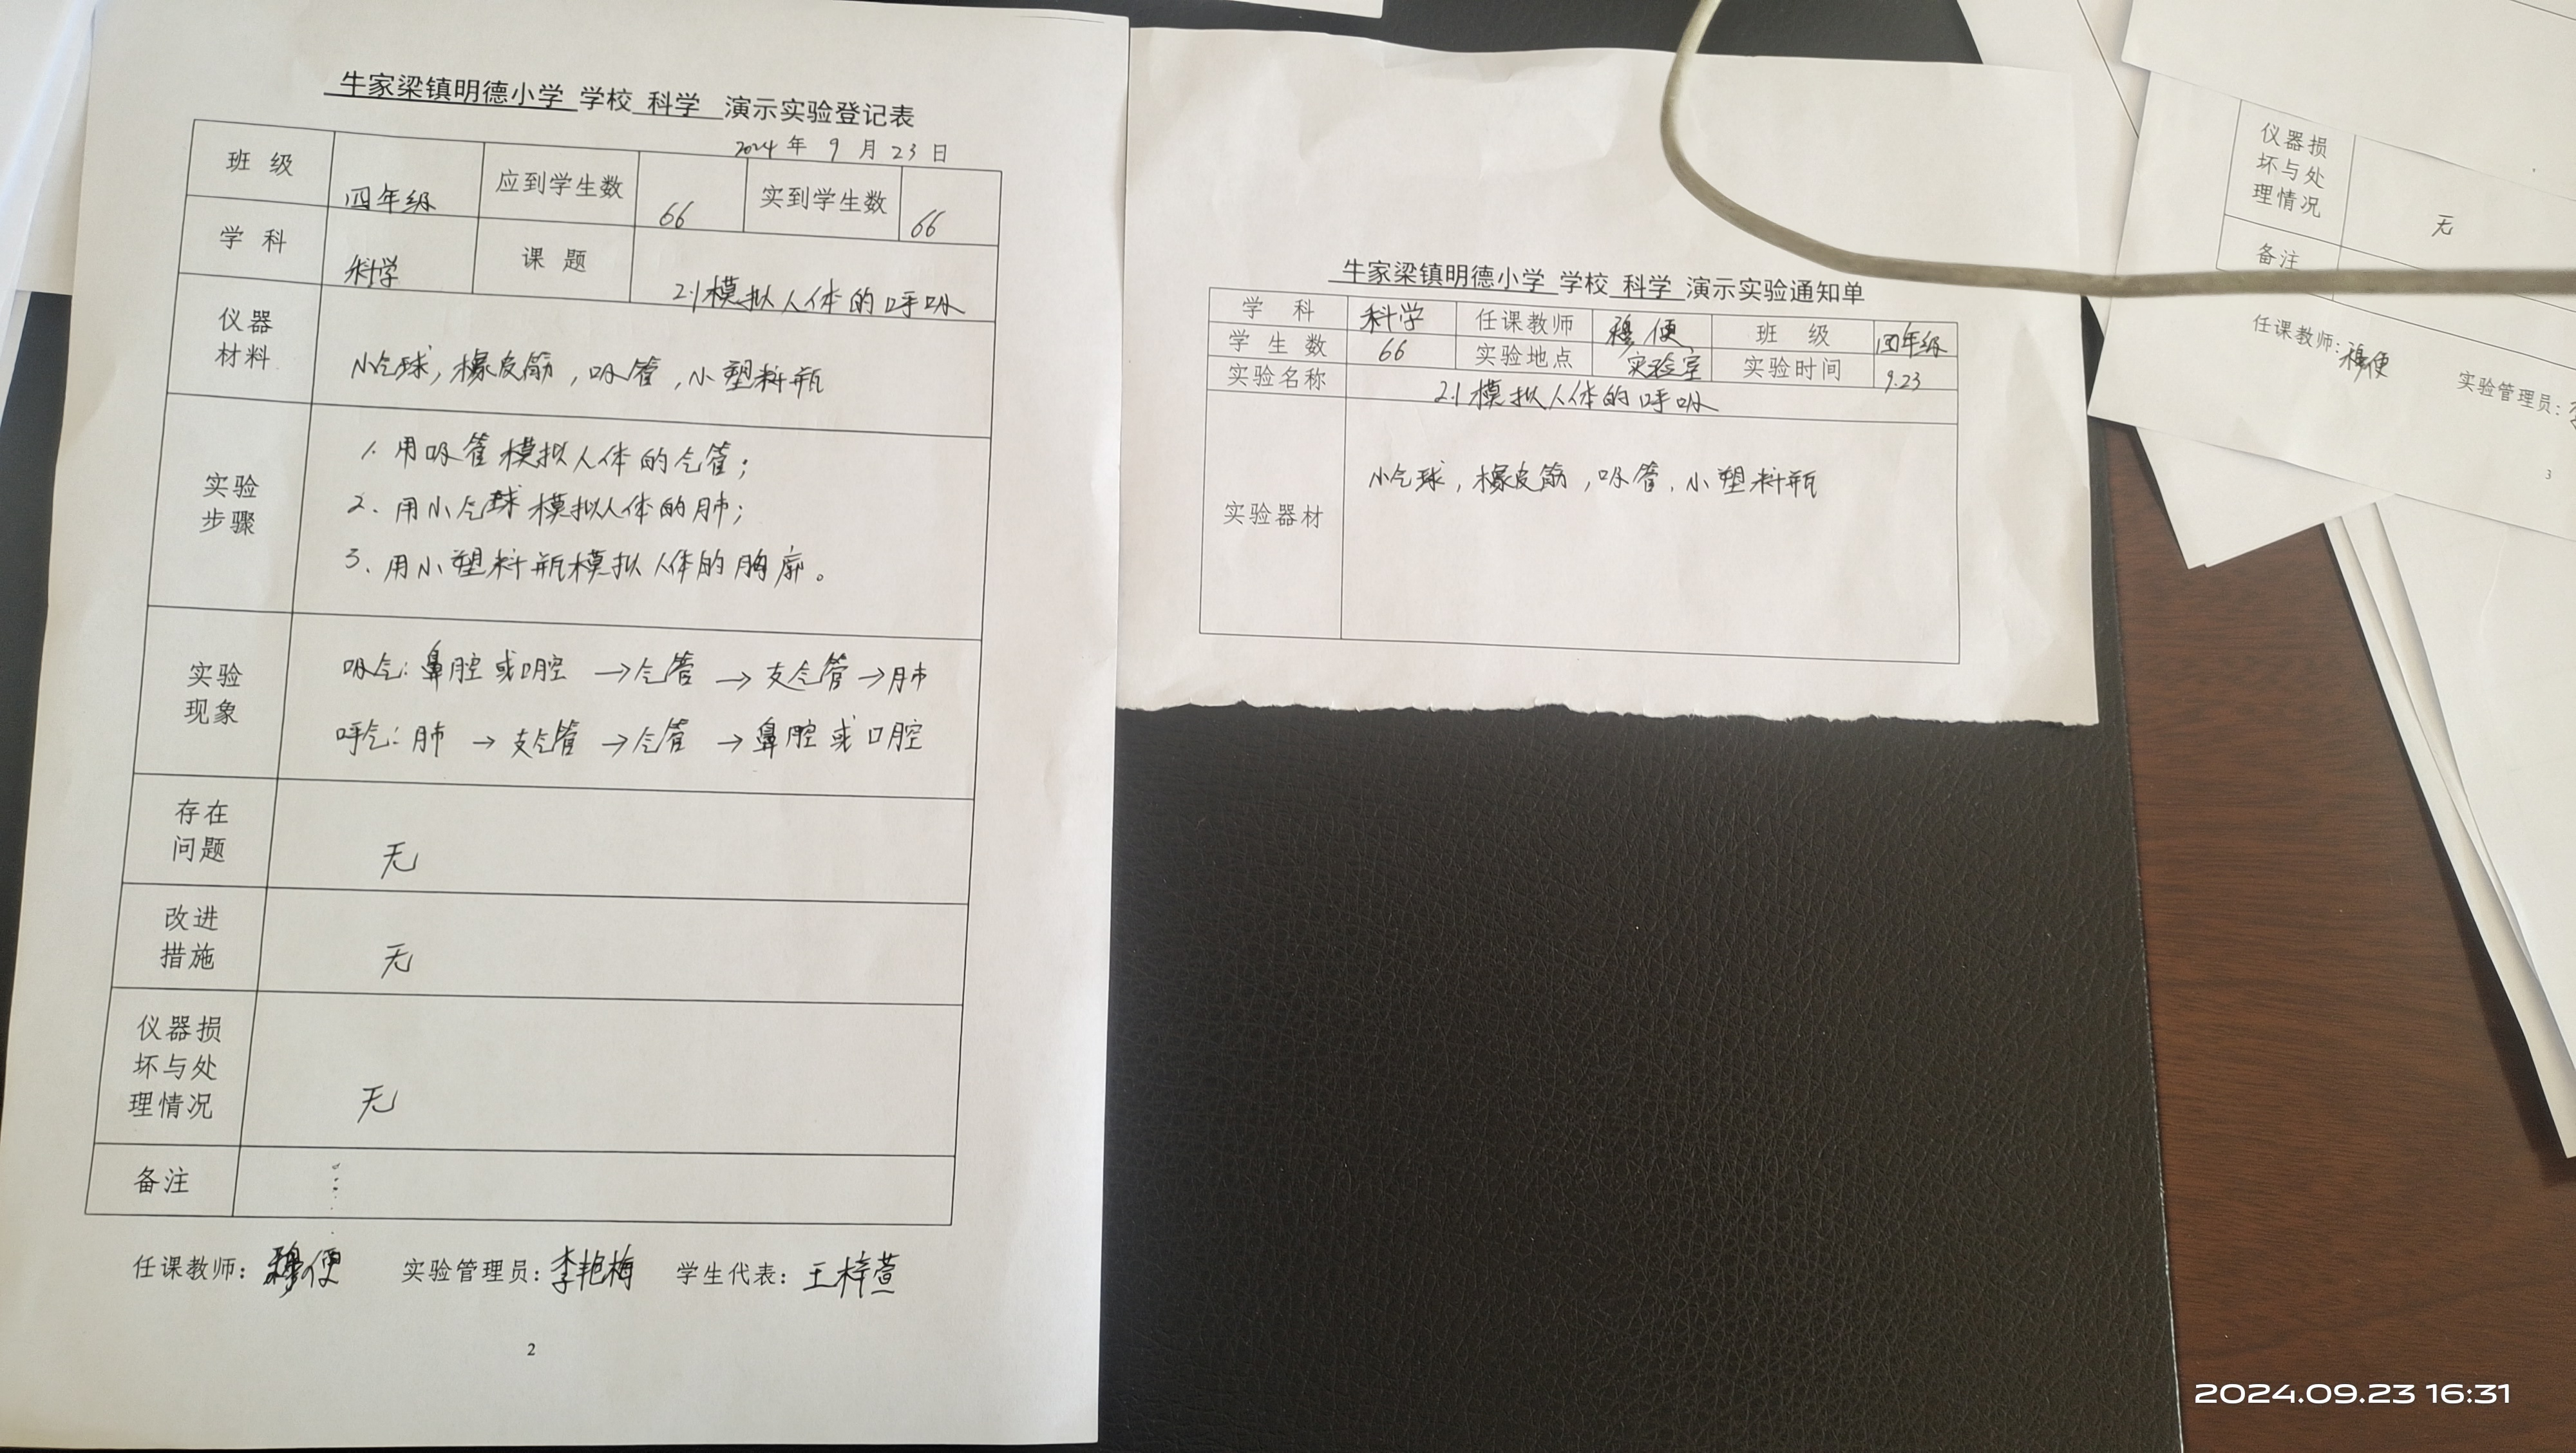 牛家梁镇明德小学 学校 科学 演示实验登记表
2024 年 9 月 23 日
班 级 四年级 应到学生数 66 实到学生数 66
学 科 科学 课 题 2.1模拟人体的呼吸
仪器
材料
小气球，橡皮筋，吸管，小塑料瓶
实验
步骤
1. 用吸管模拟人体的气管；
2. 用小气球模拟人体的肺；
3. 用小塑料瓶模拟人体的胸廓。
实验
现象
吸气：鼻腔或口腔 →气管 → 支气管 →肺
呼气：肺 → 支气管 →气管 → 鼻腔或口腔
存在
问题
无
改进
措施
无
仪器损
坏与处
理情况
无
备注
任课教师：穆便 实验管理员：李艳梅 学生代表：王梓萱
2
牛家梁镇明德小学 学校 科学 演示实验通知单
学 科 科学 任课教师 穆便 班 级 四年级
学 生 数 66 实验地点 实验室 实验时间 9.23
实验名称 2.1 模拟人体的呼吸
实验器材 小气球，橡皮筋，吸管，小塑料瓶
仪器损
坏与处
理情况
无
备注
任课教师：穆便
实验管理员：
3
2024.09.23 16:31